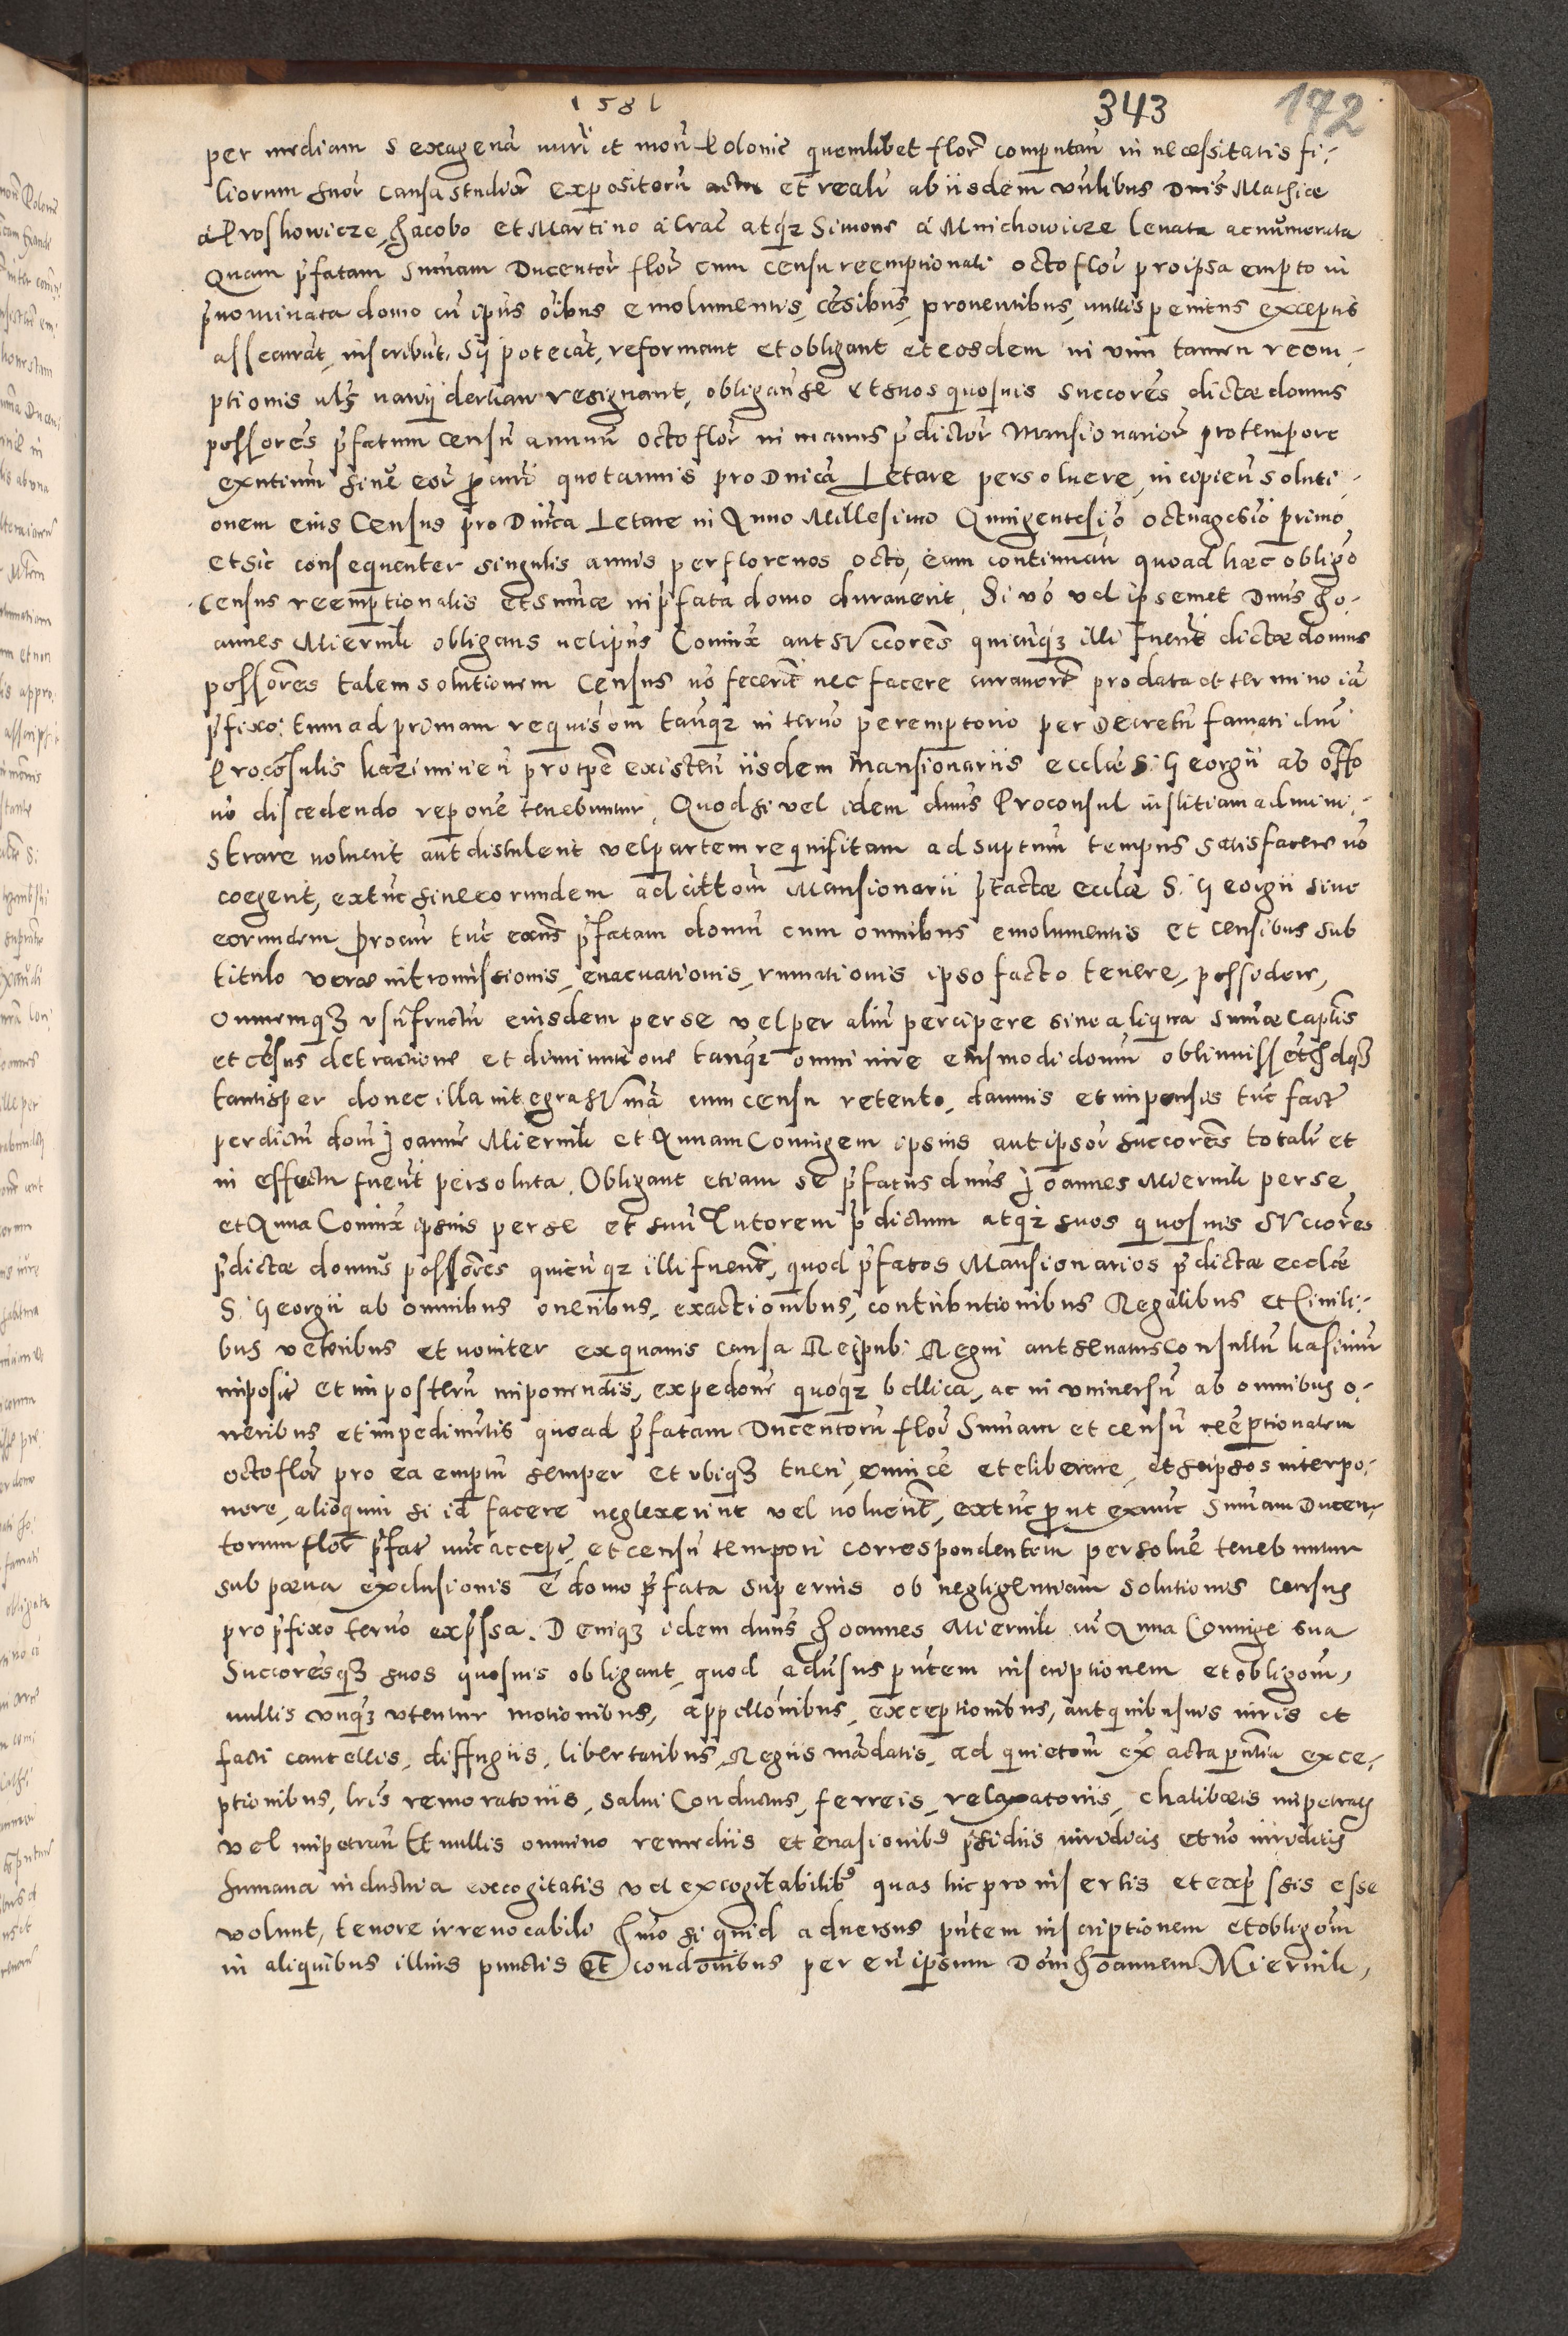 1581
343
172
per mediam sexagenā nūri et monē Polonic quemlibet flor computan in necessitatis fi-
liorum suor causa studior expositorū actu et realr ab iisdem vnlibus Dnis Mathia
à Proshowicze, Jacobo et Martino à Crac atqz Simone à Mnichowicze levata ac nūmerata
Quam pfatam Sumam Ducentor flor cum censu reemptionali octo flor pro ipsa empto in
pnominata domo cū ipius oibus emolumentis, cēsibus, proventibus, nullis penitus exceptis
assecurāt, inscribūt, Hypotecāt, reformant et obligant et eosdem in vim tamen reem-
ptionis resignant, obligan se et suos quosuis succores dictæ domus
possores pfatum censū annuū octo flor in manus pdictor Mansionarior pro tempore
exntium sive eor pcuri quotannis pro Dnica Letare persoluere, incipien soluti-
onem eius Census pro Dnica Letare in Anno Millesimo Quingentesio octuagesio primo
et sic consequenter singulis annis per florenos octo, eam continuan quoad hæc obligo
Census reemptionalis et sumæ in pfata domo duraverit. Si vō vel ipsemet Dnus Jo-
annes Miernik obligans vel ipius Coniux aut Succores quicuqz illi fuerit dictæ domus
possores talem solutionem Census nō fecerit nec facere curaverit pro data et termino iā
pfixo: tum ad primam requisom tanqz in termo peremptorio per Decretū famati dni
Procōsulis kazimirien pro tpe existen iisdem Mansionariis ecclæ S: Georgii ab offo
nō discedendo repone tenebuntur. Quod si vel idem dnus Proconsul iustitiam admini-
strare noluerit aut distulerit vel partem requisitam ad suptum tempus satisfacere nō
coegerit, ex tūc sine eorundem ad cittom Mansionarii ptactæ ecclæ S. Georgii sive
eorundem Procur tūc exns pfatam domū cum omnibus emolumentis et censibus sub
titulo veræ intromissionis, evacuationis, rumationis ipso facto tenere, possidere,
Omnemqz vsūfructū eiusdem per se vel per aliū percipere sine aliqua sumæ captis
et cēsus detractione et diminutione tanqz omni iure eiusmodi domū
tantisper donec illa integra Suma cum censu retento, damnis et impensis tūc fact
per dictū domi Joanne Miernik et Annam Coniugem ipsius aut ipsor succores totalr et
in effectu fuerit persoluta. Obligant etiam se pfatus dnus Joannes Miernik per se
et Anna Coniux ipsius per se et suū Tutorem pdictum atqz suos quosuis Succores
pdictæ domus possores quicūqz illi fuerit, quod pfatos Mansionarios pdictæ ecclæ
S. Georgii ab omnibus oneribus, exactionibus, contributionibus Regalibus et Ciuili-
bus veteribus et noviter ex quavis causa Reipub: Regni aut senatusconsultū kasimir
imposit et in posterū imponendis, expedone quoqz bellica, ac in vniversū ab omnibus o-
neribus et impedimētis quoad pfatam Ducentorū flor Sumam et censū reeptionalem
octo flor pro ea emptū semper et vbiqz tueri, evincē et eliberare, et seipsos interpo-
nere, alioquin si id facere neglexerint vel noluerit, ex tūc put exnuc Sumam Ducen-
torum flor pfat nuc accept, et censū tempori correspondentem persolue tenebuntur
sub pæna exclusionis è domo pfata superius ob negligentiam solutionis census
pro pfixo termo expssa. Deniqz idem dnus Joannes Miernik cū Anna Coniuge sua
Succoresqz suos quosuis obligant, quod adusus pntem inscriptionem et obligom,
nullis vnqz vtentur motionibus, appellonibus, exceptionibus, aut quibusuis iuris et
facti cautellis, diffugiis, libertatibus, Regiis mādatis, ad quietom ex acta pntia exce-
ptionibus, lris remoratoriis, salui Conductus, ferreis, relaxatoriis, chalibæis impetratis
vel impetran Et nullis omnino remediis et evasionibs psidiis iuridicis et nō iuridicis
humana industria excogitatis vel excogitabilibs quas hic pro insertis et expssis esse
volunt, tenore irrevocabili Imo si quid adversus pntem inscriptionem et obligom
in aliquibus illius punctis et condonibus per eū ipsum Dom Joannem Miernik,